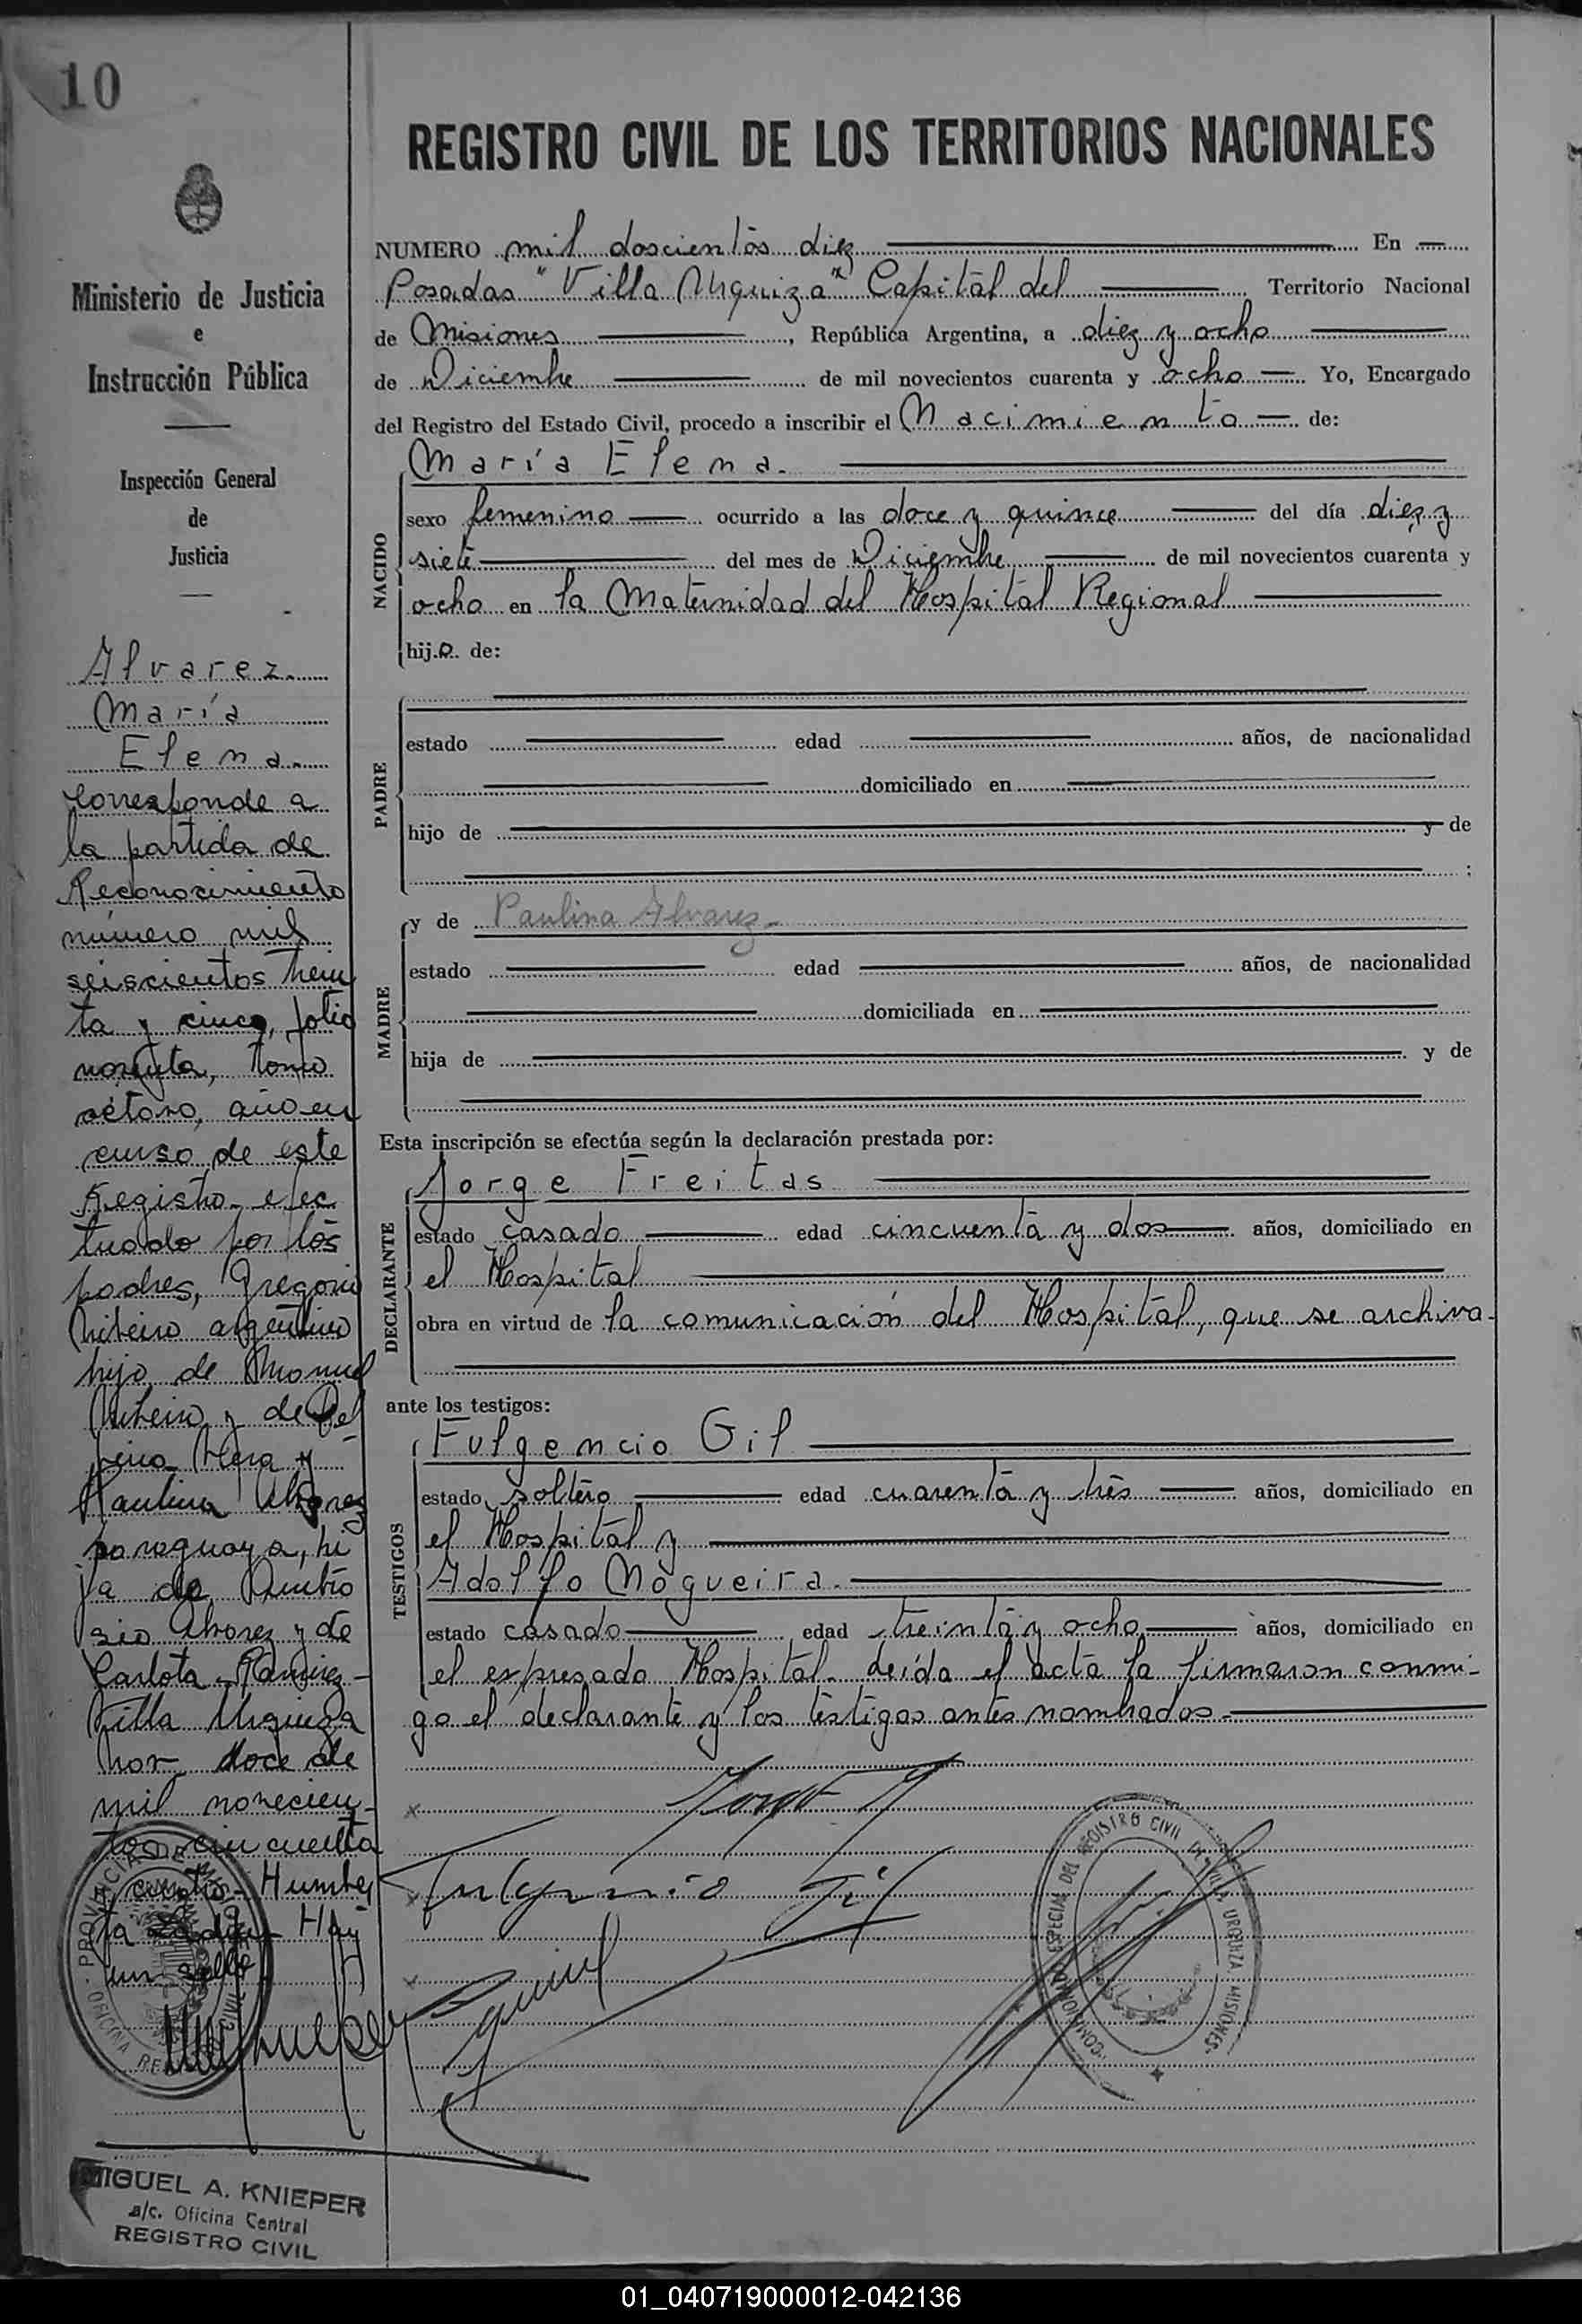 10
REGISTRO CIVIL DE LOS TERRITORIOS NACIONALES
Ministerio de Justicia
e
Instrucción Pública
Inspección General
de
Justicia
Alvarez.
María
Elena.
Corresponde a
la partida de
Reconocimiento
número mil
seiscientos trein
ta y cinco, folio
noventa, tomo
octavo, año en
curso de este
Registro efec
tuado por los
padres, Gregorio
argentino
hijo de Manuel
y de Del
fina y
Paulina Alvarez
paraguaya, hi
ja de Ambro
sio Alvarez y de
Carlota Ramirez -
Villa Urquiza
nov. doce de
mil novecien-
tos cincuenta
y cuatro - Humber
to Hay
un sello
PROVINCIA DE MISIONES
OFICINA CIVIL
MIGUEL A. KNIEPER
a/c. Oficina Central
REGISTRO CIVIL
NUMERO mil doscientos diez En
Posadas "Villa Urquiza" Capital del Territorio Nacional
de Misiones, República Argentina, a diez y ocho
de Diciembre de mil novecientos cuarenta y ocho Yo, Encargado
del Registro del Estado Civil, procedo a inscribir el Nacimiento de:
NACIDO
María Elena.
sexo femenino ocurrido a las doce y quince del día diez y
siete del mes de Diciembre de mil novecientos cuarenta y
ocho en la Maternidad del Hospital Regional
hij.a. de:
PADRE
estado edad años, de nacionalidad
domiciliado en
hijo de y de
;
MADRE
y de Paulina Alvarez.-
estado edad años, de nacionalidad
domiciliada en
hija de y de
Esta inscripción se efectúa según la declaración prestada por:
DECLARANTE
Jorge Freitas
estado casado edad cincuenta y dos años, domiciliado en
el Hospital
obra en virtud de la comunicación del Hospital, que se archiva.
ante los testigos:
TESTIGOS
Fulgencio Gil
estado soltero edad cuarenta y tres años, domiciliado en
el Hospital y
Adolfo Nogueira.
estado casado edad treinta y ocho años, domiciliado en
el expresado Hospital. Leída el acta la firmaron conmi-
go el declarante y los testigos antes nombrados.-
Fulgencio Gil
COMISIONADO ESPECIAL DEL REGISTRO CIVIL DE "VILLA URQUIZA" MISIONES
01_040719000012-042136